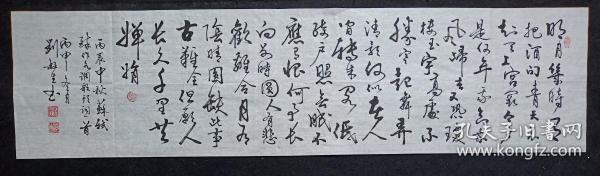 明月幾時有
把酒问青天不
知天上宫阙今夕
是何年我欲乘
风归去又恐瓊
楼玉宇高處不
勝寒起舞弄
清影何似在人
间轉朱阁低
绮户照无眠不
應有恨何事长
向别時圆人有悲
歡離合月有
陰晴圆缺此事
古難全但願人
长久千里共
婵娟
丙辰中秋苏轼
水调歌头词一首
丙申年
孔夫子旧书网
www.kongfz.com